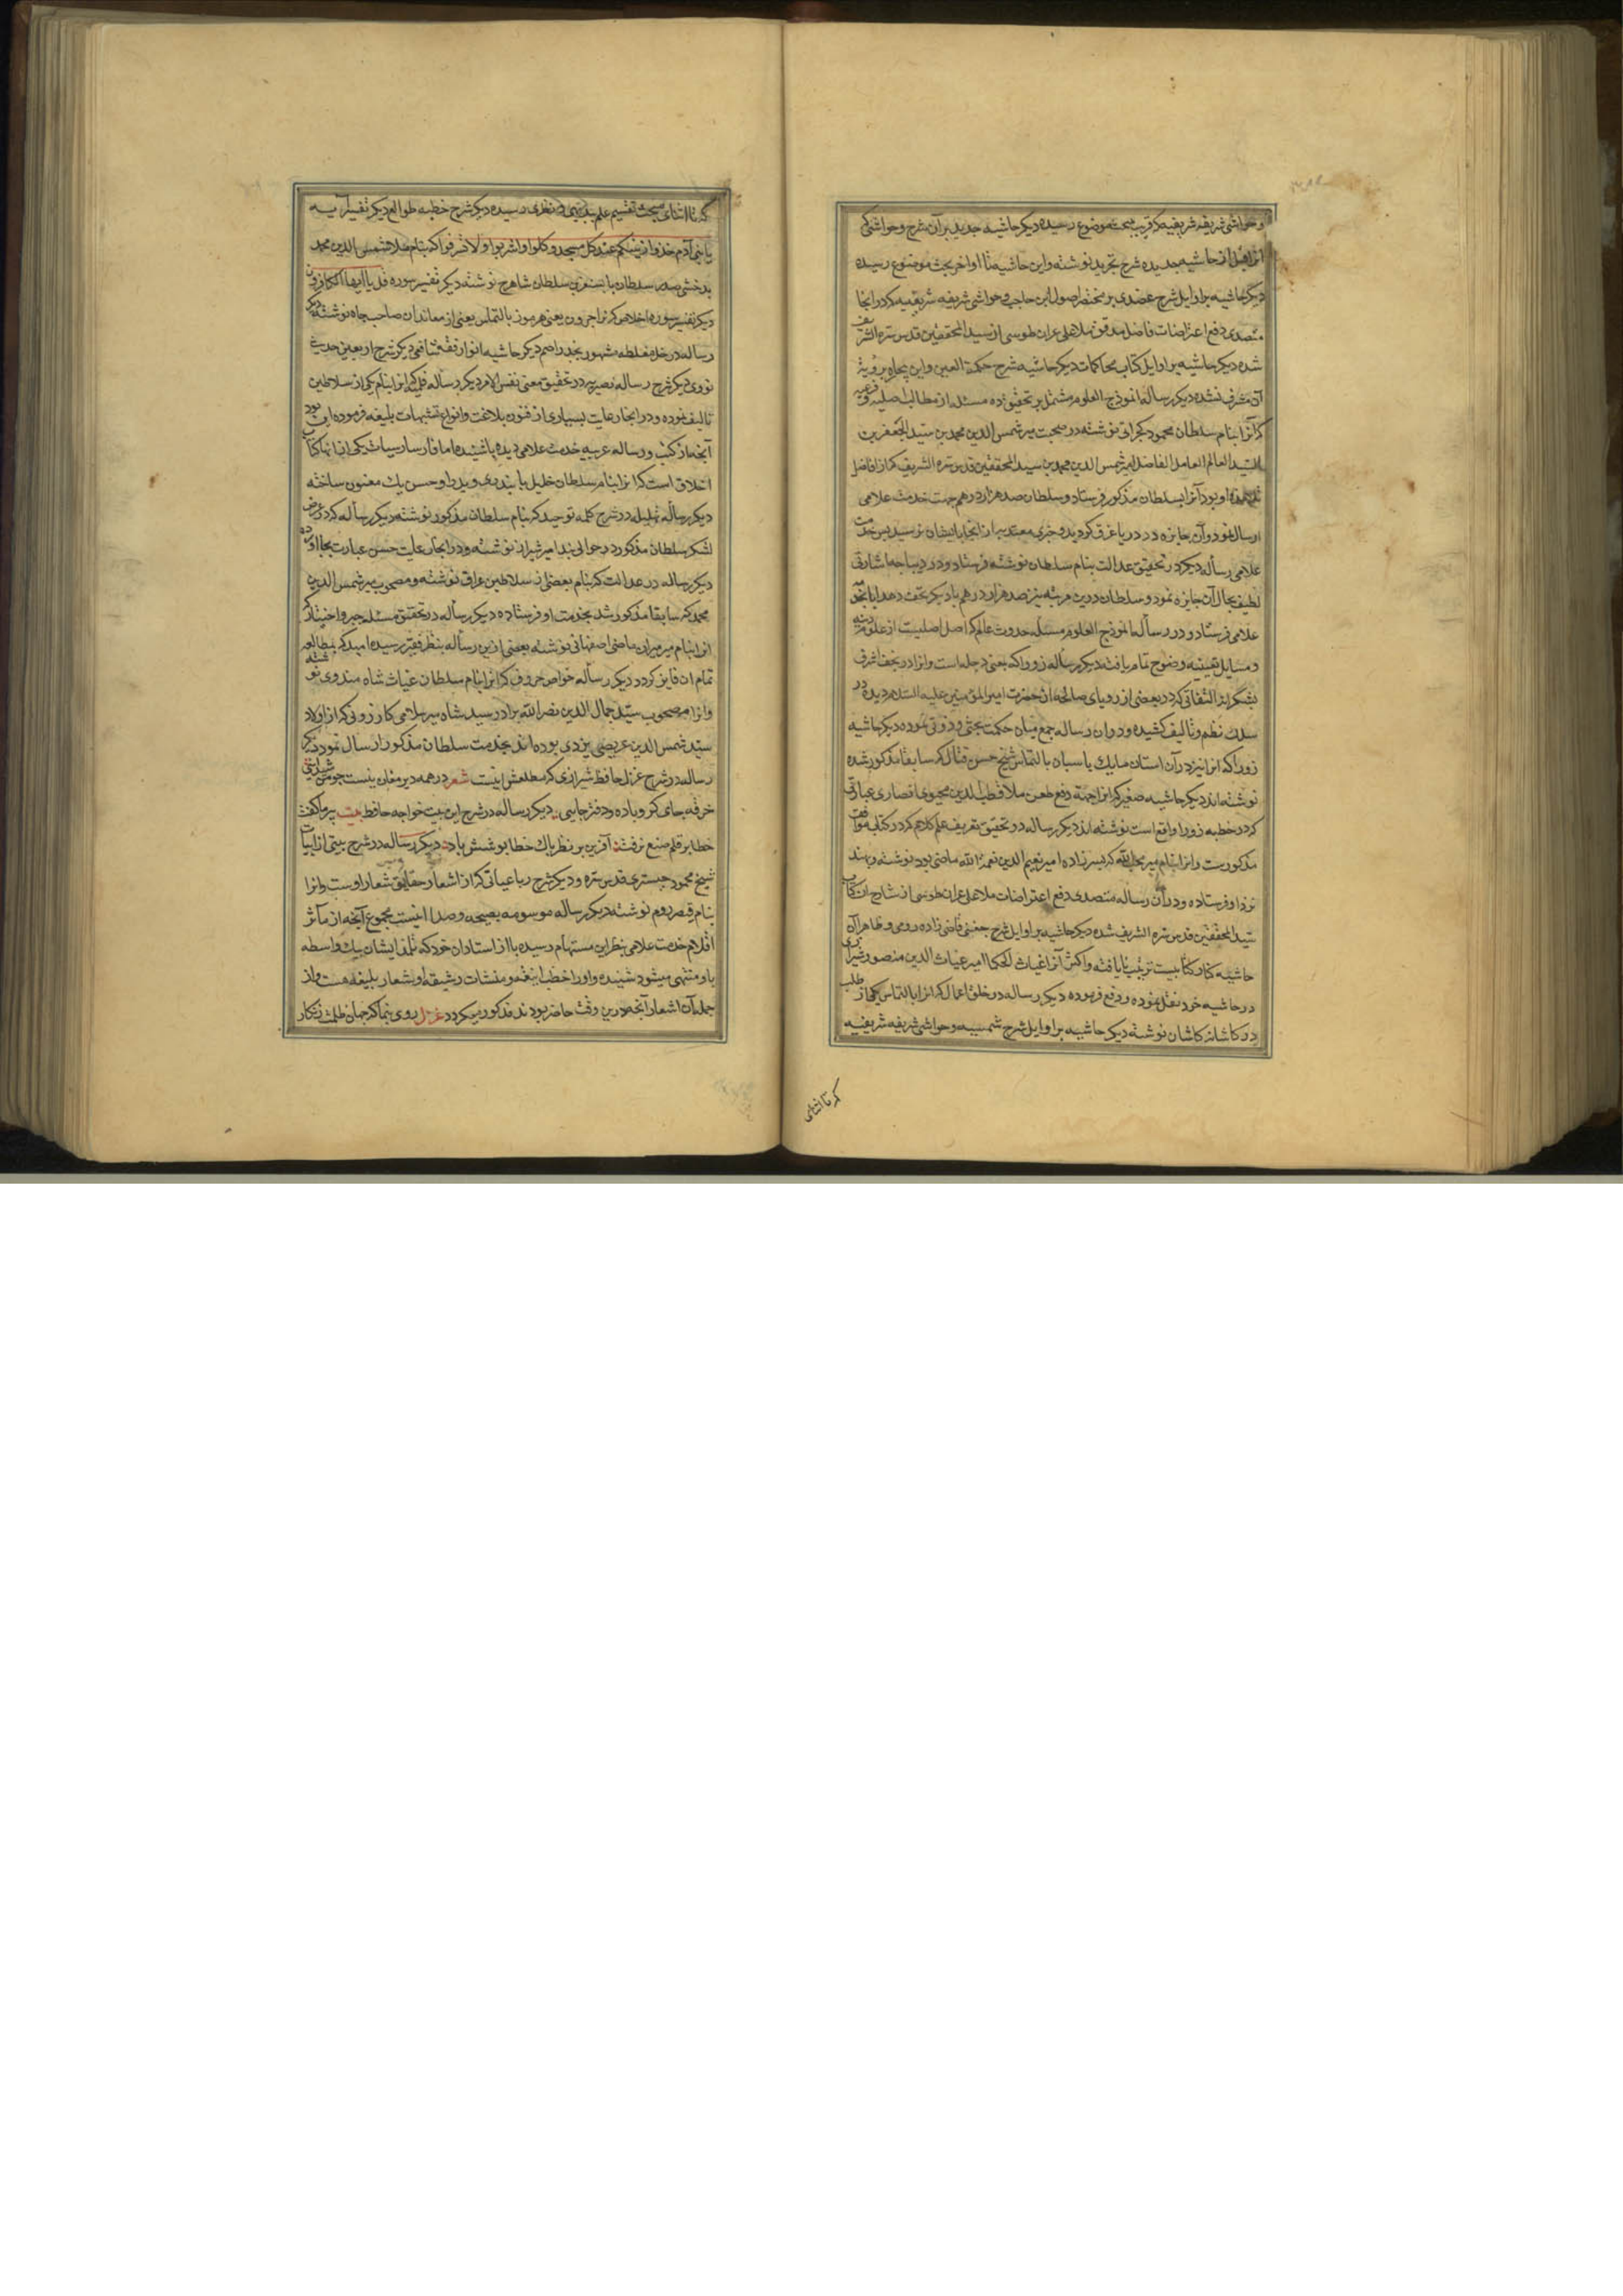 و حواشی شریفه شریفیه که قریب بمبحث موضوع رسیده دیگر حاشیه جدید بر آن شرح و حواشی که
از حاشیه جدیده شرح تجرید نوشته و این حاشیه تا اواخر بحث موضوع رسیده
دیگر حاشیه بر اوایل شرح عضدی بر مختصر اصول ابن حاجب و حواشی شریفه شریفیه که در انجا
متصدی دفع اعتراضات فاضل مدقق ملا علی عران طوسی از سید المحققین قدس سره الشریف
شده دیگر حاشیه بر اوایل کتاب محاکمات دیگر حاشیه شرح حکمة العین و این بیچاره برؤیة
آن مشرف نشده دیگر رساله انموذج العلوم مشتمل بر تحقیق ده مسئله از مطالب اصلیه و فرعیه
که آنرا بنام سلطان محمود کجراتی نوشته در صحبت میر شمس الدین محمد بن سید الجعفر بن
السید العالم العامل الفاضل امیر شمس الدین محمد بن سید المحققین قدس سره الشریف که از افاضل
تلامذه او بود آنرا بسلطان مذکور فرستاد و سلطان صد هزار درهم جهت خدمت علامی
ارسال نمود و آن جایزه در دریا غرق کردید و خبری معتد به از انجا بایشان نرسید پس خدمت
علامی رسأله دیگر در تحقیق عدالت بنام سلطان نوشته فرستاد و در دیباجه اشارتی
لطیف بحال آن جایزه نمود و سلطان درین مرتبه نیز صد هزار درهم با دیگر تحف و هدایا بخدمت
علامی فرستاد و در رسأله انموذج العلوم مسئله حدوث عالم که اصل اصلیست از علوم دینیه
و مسایل یقینیه وضوح تمام یافته دیگر رسأله زورا که یعنی دجله است و انرا در نجف اشرف
بشکرانه التفاتی که در بعضی از رویای صالحه از حضرت امیر المؤمنین علیه السلام دیده در
سلک نظم و تالیف کشیده و در ان رساله جمع میان حکمت بحثی و ذوقی نموده دیگر حاشیه
زورا که انرا نیز در آن استان ملایک پاسبان بالتماس شیخ حسن قتال که سابقا مذکور شده
نوشته‌اند دیگر حاشیه صغیر که انرا جهة دفع طعن ملا قطب الدین محیوی انصاری عبارتی
که در خطبه زورا واقع است نوشته‌اند دیگر رساله در تحقیق تعریف علم کلام که در کتاب مواقف
مذکورست و انرا بنام میر محب الله که پسر زاده امیر نعیم الدین نعمة الله ماضی بود نوشته و بهند
نزد او فرستاده و در آن رساله متصدی دفع اعتراضات ملا علی عران طوسی از شارح ان کتاب
سید المحققین قدس سره الشریف شده دیگر حاشیه بر اوایل شرح چغمنی قاضی زاده رومی و ظاهرا آن
حاشیه کنار کتابیست ترتیب نایافته و اکثر آنرا غیاث الحکما امیر غیاث الدین منصور شیرازی
در حاشیه خود نقل نموده و رفع فرموده دیگر رساله در خلق اعمال که انرا بالتماس یکی از طلب
در کاشانه کاشان نوشته دیگر حاشیه بر اوایل شرح شمسیه و حواشی شریفه شریفیه
که تا اثنای
که تا اثنای مبحث تقسیم علم ببدیهی و نظری رسیده دیگر شرح خطبه طوالع دیگر تفسیر آیه
یا بنی آدم خذوا زینتکم عند کل مسجد و کلوا واشربوا ولا تسرفوا که بنام ملا شمس الدین محمد
بدخشی صدر سلطان بایسنغر بن سلطان شاهرخ نوشته دیگر تفسیر سوره قل یا ایها الکافرون
دیگر تفسیر سوره اخلاص که در اجرون یعنی هرموز بالتماس بعضی از معاندان صاحب جاه نوشته دیگر
رساله در حل مغلطه مشهور بجذر اصم دیگر حاشیه انوار فقه شافعی دیگر شرح اربعین حدیث
نووی دیگر شرح رساله نصیریه در تحقیق معنی نفس الامر دیگر رساله قلمیه که انرا بنام یکی از سلاطین
تالیف نموده و در انجا رعایت بسیاری از فنون بلاغت و انواع تشبیهات بلیغه فرموده این بود
آنچه از کتب و رساله عربیه خدمت علامی دیده یا شنیده اما فارسیات یکی از انها کتاب
اخلاق است که انرا بنام سلطان خلیل بایندری و پدر او حسن بیک معنون ساخته
دیگر رسأله تهلیلیه در شرح کلمه توحید که بنام سلطان مذکور نوشته دیگر رسأله که در عرض
لشکر سلطان مذکور در حوالی بند امیر شیراز نوشته و در انجا رعایت حسن عبارت بجا آورده
دیگر رساله در عدالت که بنام بعضی از سلاطین عراق نوشته و مصحوب میر شمس الدین
محمد که سابقا مذکور شد بخدمت او فرستاده دیگر رسأله در تحقیق مسئله جبر و اختیار که
انرا بنام میر میران ماضی اصفهانی نوشته بعضی از ین رسأله بنظر فقیر رسیده امید که بمطالعه
تمام ان فایز کردد دیگر رسأله خواص حروف که انرا بنام سلطان غیاث شاه مندوی نوشته
و انرا مصحوب سید جمال الدین نصر الله برادر سید شاه میر سلامی کازرونی که از اولاد
سید شمس الدین عریضی یزدی بوده‌اند بخدمت سلطان مذکور ارسال نمود دیگر
رساله در شرح غزل حافظ شیرازی که مطلعش اینست شعر در همه دیر مغان نیست چو من شیدائی
خرقه جائی گرو باده و دفتر جایی دیگر رساله در شرح این بیت خواجه حافظ بیت پیر ما گفت
خطا بر قلم صنع نرفت آفرین بر نظر پاک خطا پوشش باد دیگر رساله در شرح بیتی از ابیات
شیخ محمود جبستری قدس سره و دیگر شرح رباعیاتی که از اشعار حقایق شعار اوست و انرا
بنام قیصر روم نوشته دیگر رساله موسومه بصیحه و صدا اینست مجموع آنچه از مآثر
اقلام خدمت علامی بنظر این مستهام رسیده یا از استادان خود که تلمذ ایشان بیک واسطه
باو منتهی میشود شنیده و اورا خطب انیقه و منشات رشیقه و اشعار بلیغه هست و از
جمله آن اشعار آنچه درین وقت حاضر بود ند مذکور میکردد غزل روی بنما که جهان ظلمت زنکار